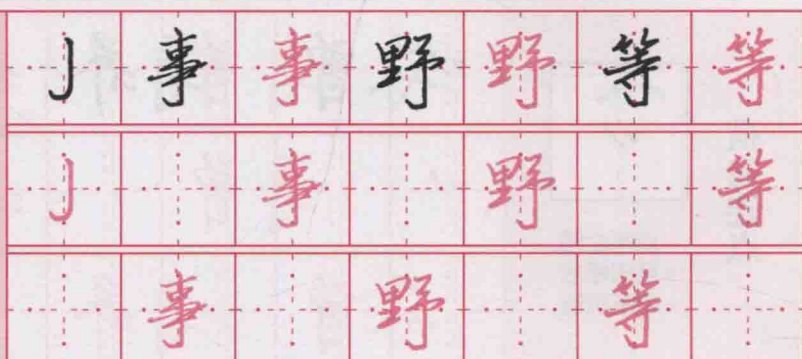 亅事事野野等等
亅事野等
事野等